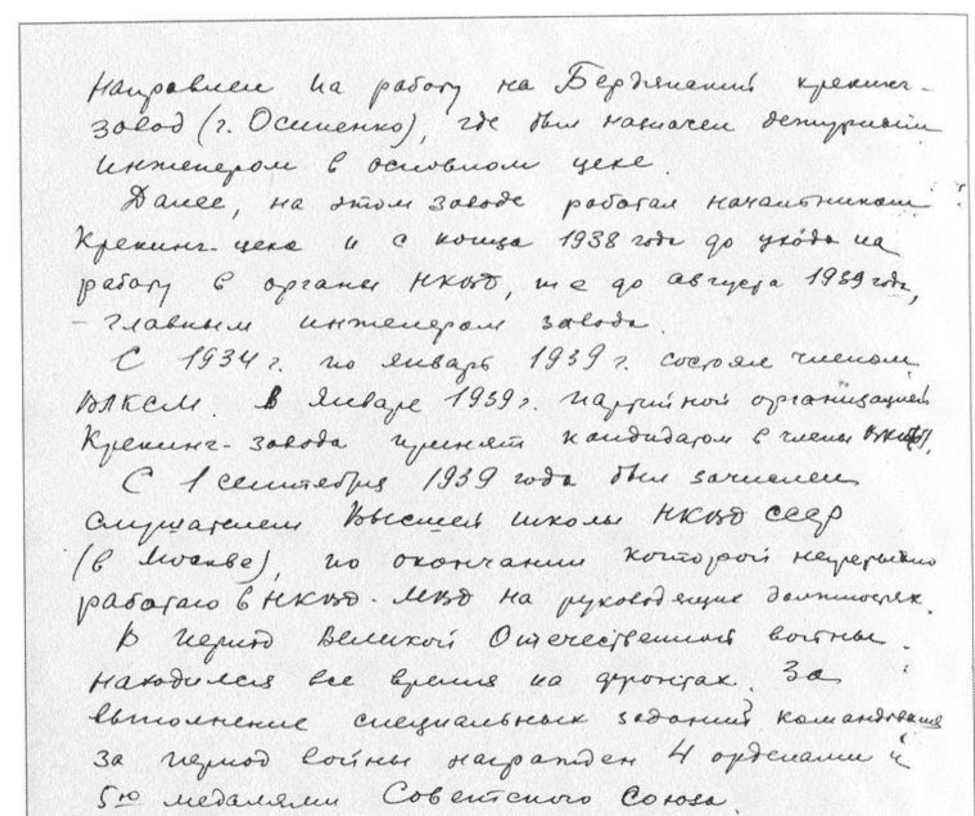 направлен на работу на Бердянский крекинг-
завод (г. Осипенко), где был назначен дежурным
инженером в основном цехе.
Далее, на этом заводе работал начальником
Крекинг-цеха и с конца 1938 года до ухода на
работу в органы НКВД, т е до августа 1939 года,
- главным инженером завода.
С 1934 г. по январь 1939 г. состоял членом
ВЛКСМ. В январе 1939 г. партийной организацией
Крекинг-завода принят кандидатом в члены ВКП(б).
С 1 сентября 1939 года был зачислен
слушателем Высшей школы НКВД СССР
(в Москве), по окончании которой непрерывно
работаю в НКВД-МВД на руководящих должностях.
В период Великой Отечественной войны
находился все время на фронтах. За
выполнение специальных заданий командования
за период войны награжден 4 орденами и
5ю медалями Советского Союза.